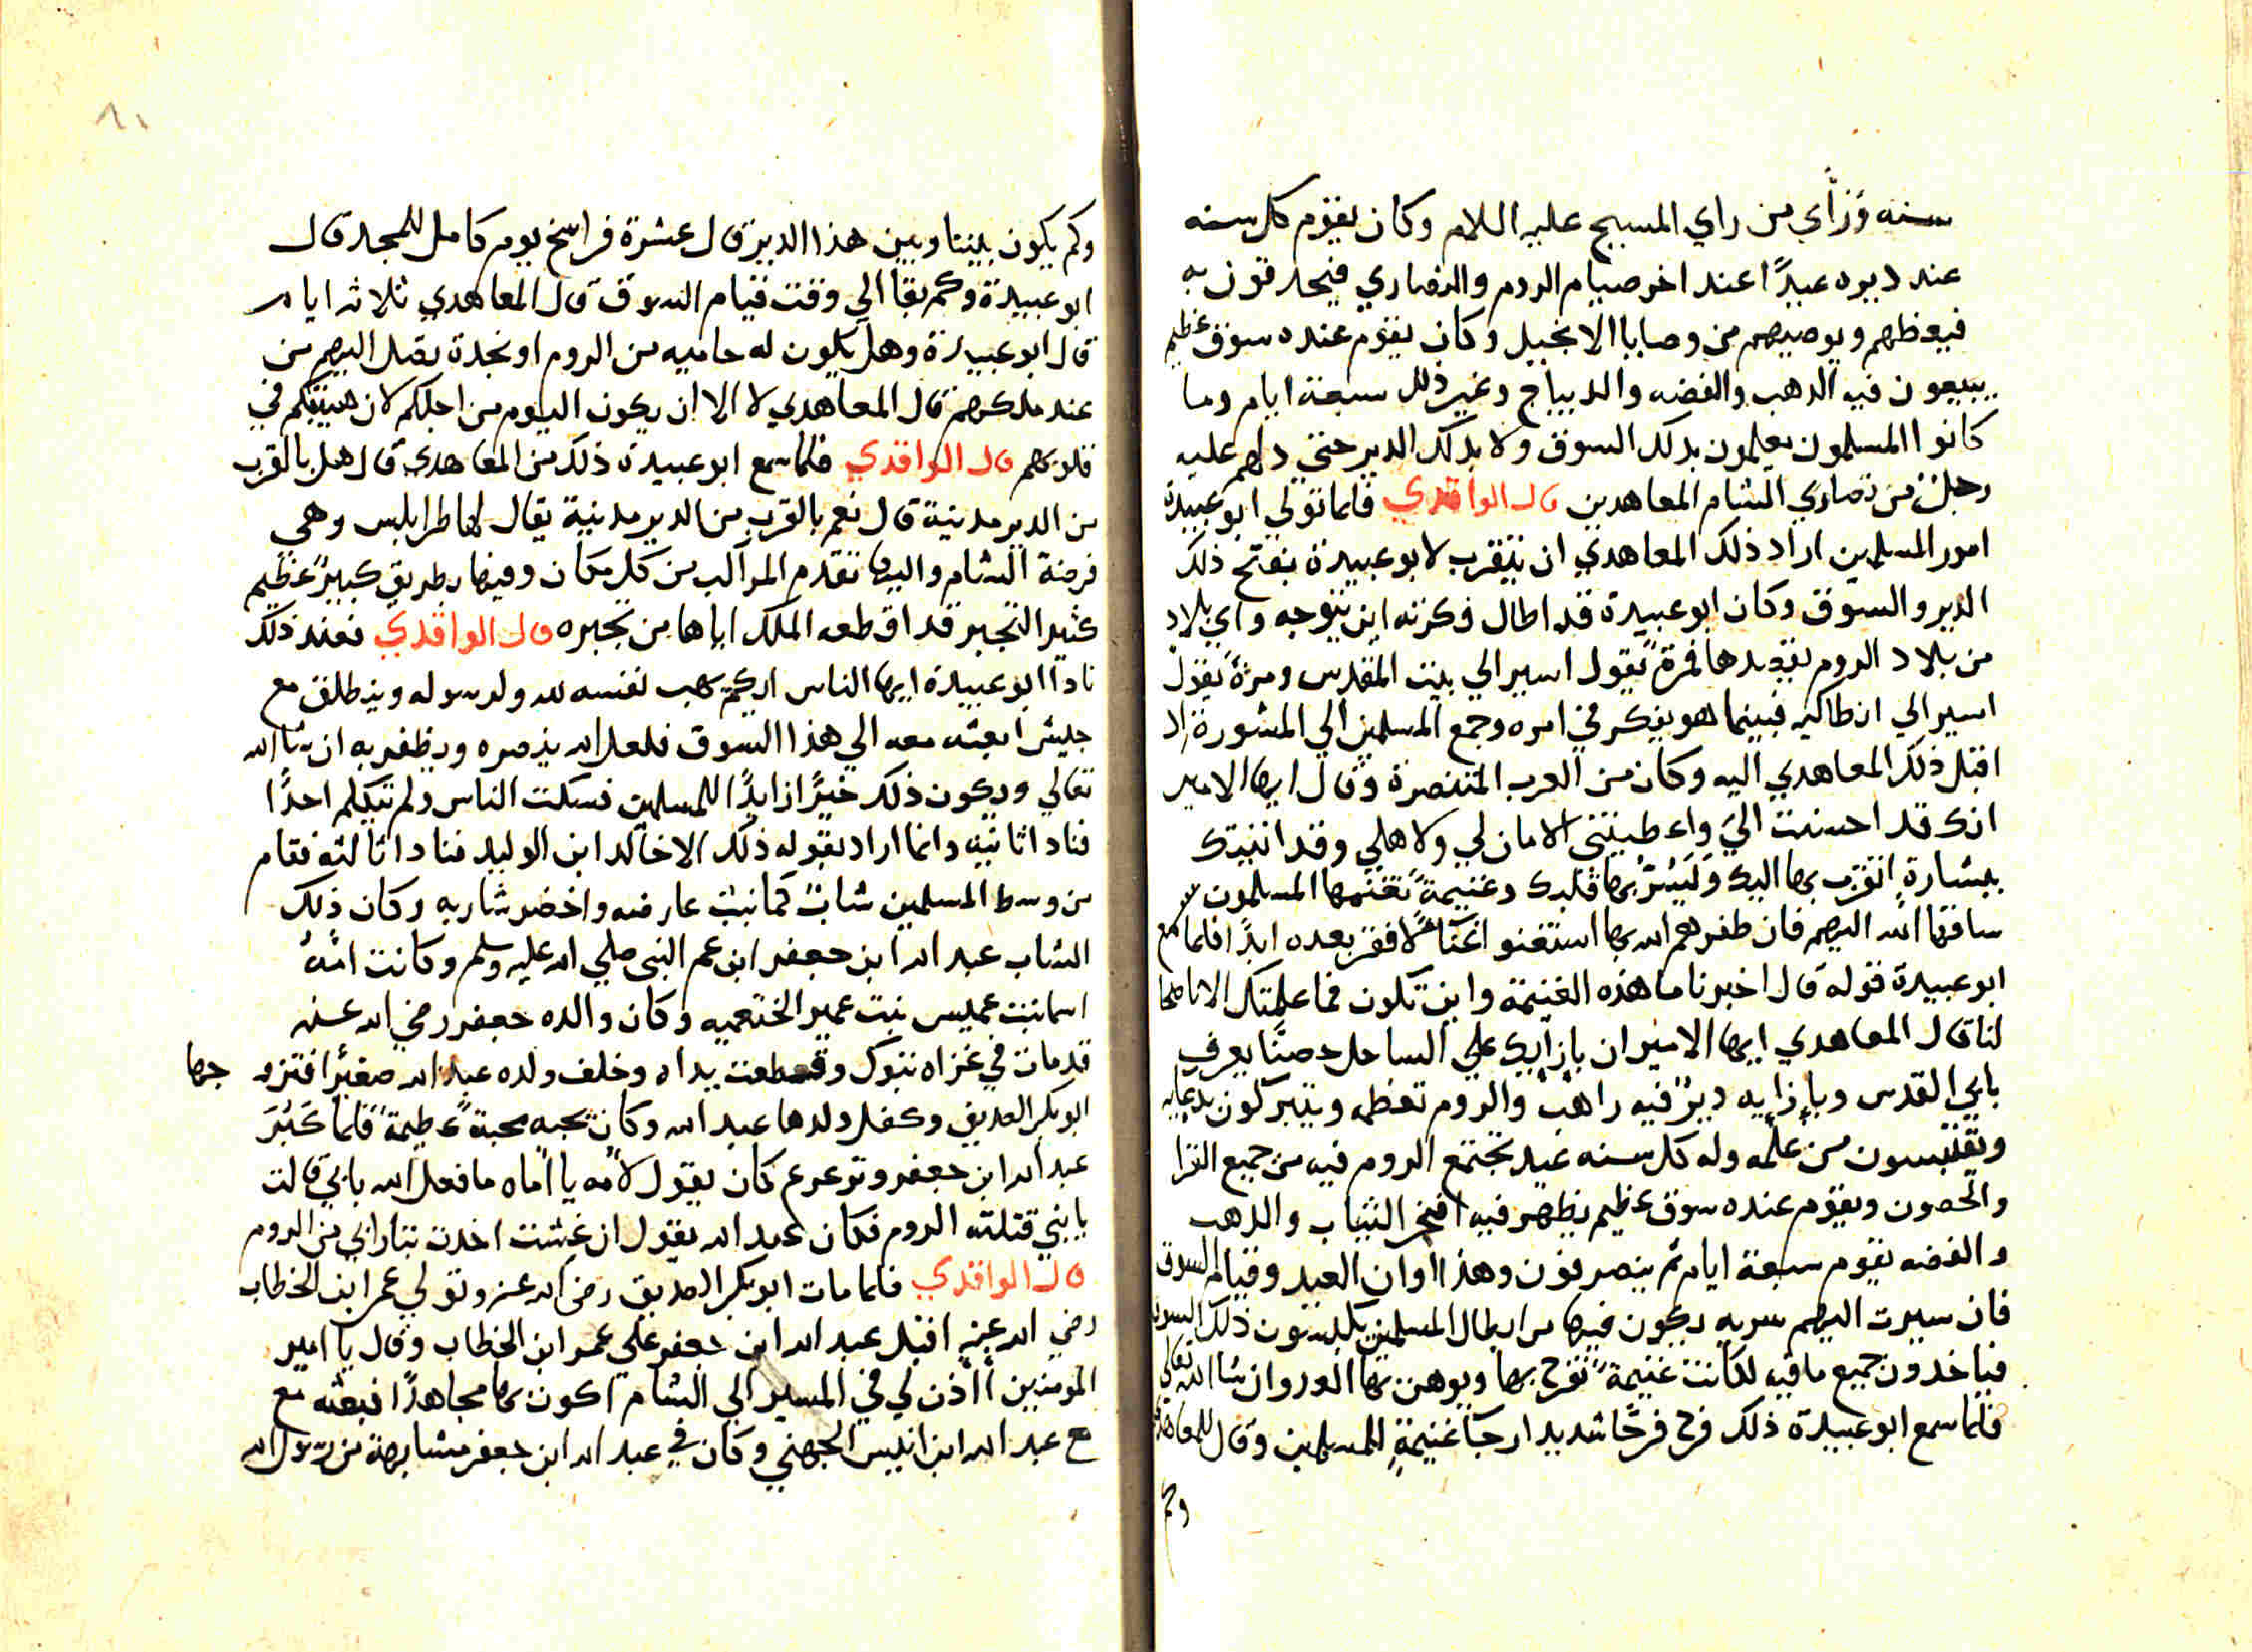 سنه وراي من راي المسيح عليه السلام وكان يقوم كل سنه
عند ديره عيدًا عند اخر صيام الروم والنصاري فيحدقون به
فيعظهم ويوصيهم من وصايا الانجيل وكان يقوم عنده سوق عظيم
يبيعون فيه الدهب والفضه والديباج وغير ذلك سبعة ايام وما
كانوا المسلمون يعلمون بدلك السوق ولا بدلك الدير حتي دلهم عليه
رجل من نصاري الشام المعاهدين قال الواقدي فلما تولي ابو عبيدة
امور المسلمين اراد ذلك المعاهدي ان يتقرب لابو عبيدة بفتح ذلك
الدير والسوق وكان ابو عبيدة قد اطال فكرته اين يتوجه واي بلاد
من بلاد الروم يقصدها فمرةً يقول اسير الي بيت المقدس ومرةً يقول
اسير الي انطاكيه فبينما هو يفكر في امره وجمع المسلمين الي المشورة اد
اقبل ذلك المعاهدي اليه وكان من العرب المتنصرة وقال ايها الامير
انك قد احسنت اليَ واعطيتني الامان لي ولاهلي وقد اتيتك
ببشارةٍ اتقرب بها اليك وليُسَرُّ بها قلبك وغنيمةً تغنمها المسلمون
ساقها الله اليهم فان ظفرهم الله بها استغنو اغناءً لا فقر بعده ابدًا فلما سمع
ابو عبيدة قوله قال اخبرنا ما هذه الغنيمة واين تكون فما علمتك الا ناصحا
لنا قال المعاهدي ايها الامير ان بازايك علي الساحل حصنًا يعرف
بابي القدس وبإزايه ديرٌ فيه راهب والروم تعظمه ويتبركون بدعايه
ويقتبسون من علمه وله كل سنه عيد يجتمع الروم فيه من جميع القرا
والحصون ويقوم عنده سوق عظيم يظهر فيه افخر الثياب والدهب
والفضه يقوم سبعة ايام ثم ينصرفون وهذا اوان العيد وقيام السوق
فان سيرت اليهم سريه يكون فيها من ابطال المسلمين يكبسون ذلك السوق
فياخدون جميع ما فيه لكانت غنيمةً تفرح بها ويوهن بها العدو ان شا الله تعالي
فلما سمع ابو عبيدة ذلك فرح فرحًا شديد ارجآ غنيمةٍ للمسلمين وقال للمعاهدي
وكم
وكم يكون بيننا وبين هذا الدير قال عشرة فراسخ يوم كامل للمجد قال
ابو عبيدة وكم بقا الي وقت قيام السوق قال المعاهدي ثلاثه ايام
قال ابو عبيدة وهل يكون له حاميه من الروم او نجدة يقبل اليهم من
عند ملكهم قال المعاهدي لا الا ان يكون اليوم من اجلكم لان هيبتكم في
قلوبهم قال الواقدي فلما سمع ابو عبيدة ذلك من المعاهدي قال هل بالقرب
من الدير مدينة قال نعم بالقرب من الدير مدينة يقال لها طرابلس وهي
فرضة الشام واليها تقدم المراكب من كل مكان وفيها بطريق كبيرٌ عظيم
كثير التجبر قد اقطعه الملك اياها من تجبره قال الواقدي فعند ذلك
نادا ابو عبيدة ايها الناس ايكم يهب نفسه لله ولرسوله وينطلق مع
جيش ابعثه معه الي هذا السوق فلعل الله ينصره ويظفر به ان شا الله
تعالي ويكون ذلك خيرًا زايدًا للمسلمين فسكت الناس ولم يتكلم احدًا
فنادا ثانيه وانما اراد بقوله ذلك الا خالد ابن الوليد فنادا ثالثه فقام
من وسط المسلمين شاب كما نبت عارضه واخضر شاربه وكان ذلك
الشاب عبد الله ابن جعفر ابن عم النبي صلي الله عليه وسلم وكانت امُّهُ
اسما بنت عميس بنت عمير الخثعميه وكان والده جعفر رضي الله عنه
قد مات في غزاه تبوك وقطعت يداه وخلف ولده عبد الله صغيرًا فتزو جها
ابو بكر الصديق وكفل ولدها عبد الله وكان يحبه محبةً عظيمة فلما كَبُرَ
عبد الله ابن جعفر وترعرع كان يقول لامه يا اماه ما فعل الله بابي قالت
يا بني قتلته الروم فكان عبد الله يقول ان عشت اخدت بتار ابي من الروم
قال الواقدي فلما مات ابو بكر الصديق رضي الله عنه وتولي عمر ابن الخطاب
رضي الله عنه اقبل عبد الله ابن جعفر علي عمر ابن الخطاب وقال يا امير
المومنين أأذن لي في المسير الي الشام اكون بها مجاهدًا فبعثه مع
مع عبد الله ابن انيس الجهني وكان في عبد الله ابن جعفر مشابهة من رسول الله